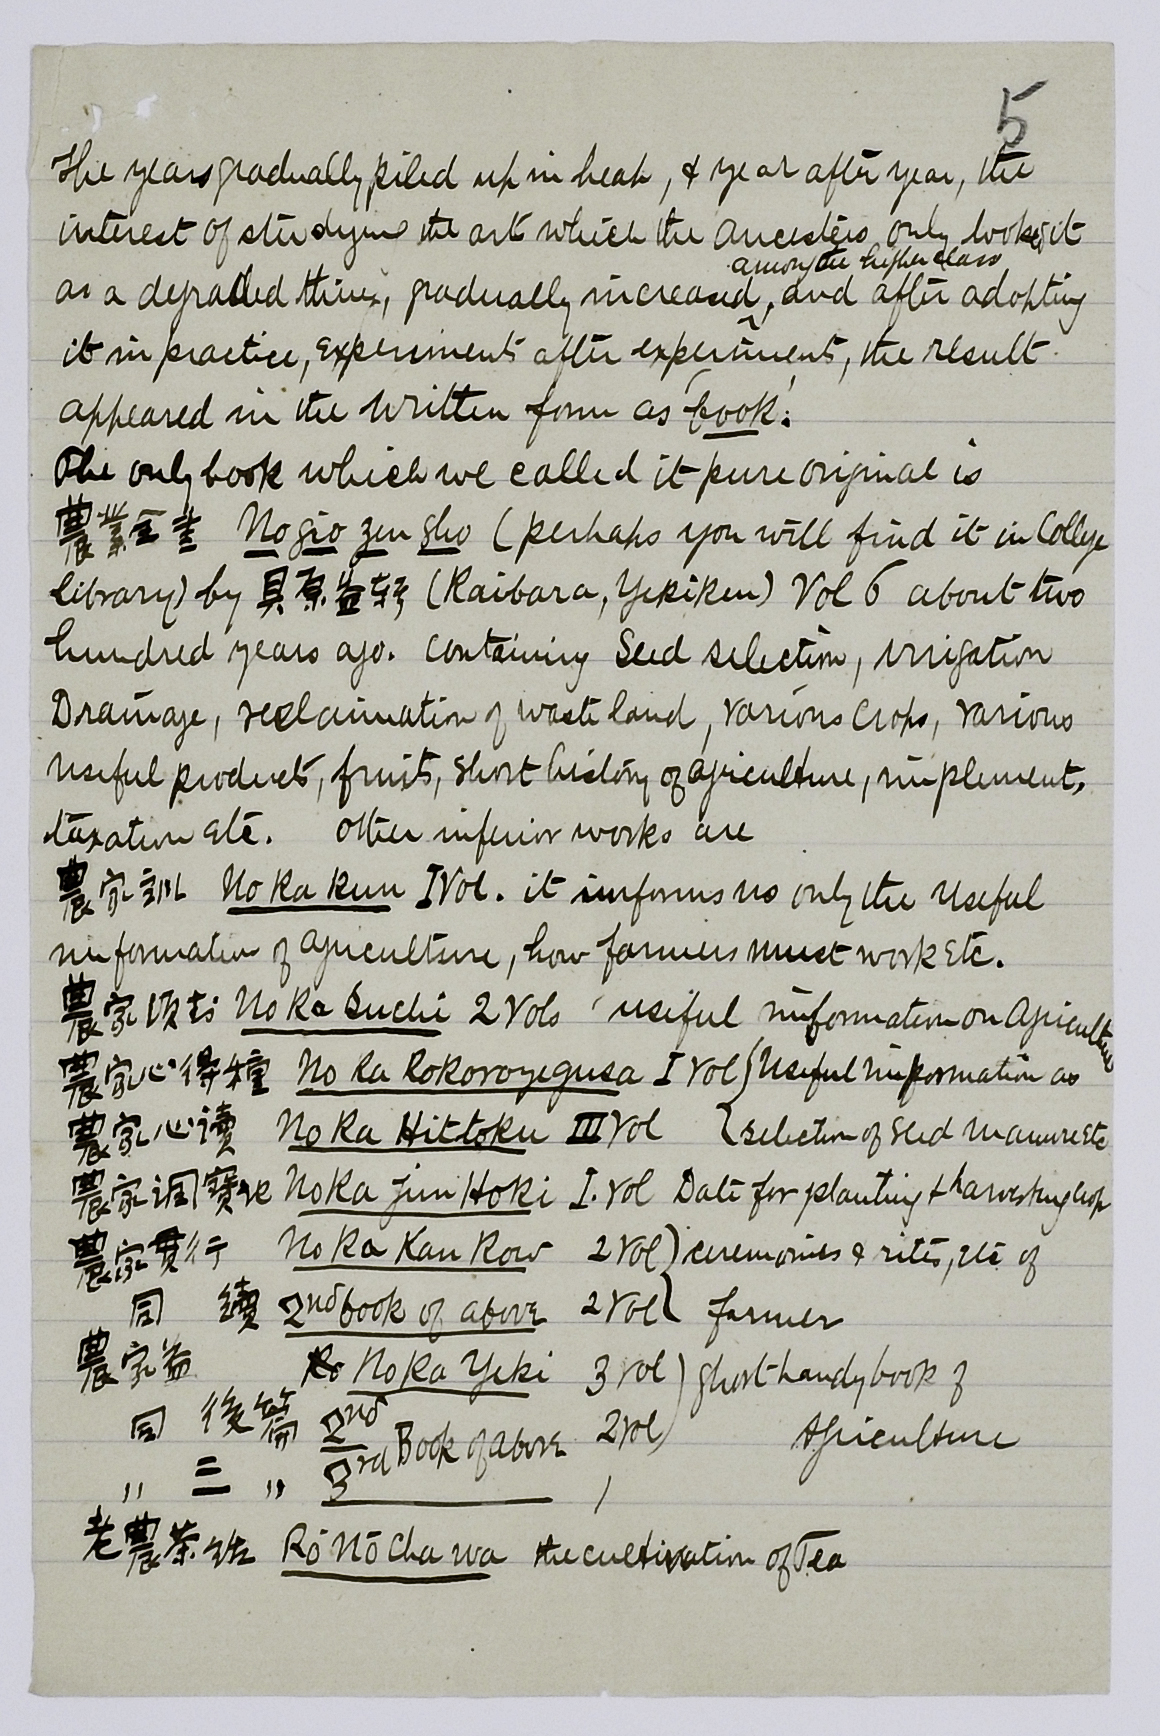 5
The years gradually piled up in heap, & year after year, the
interest of studying the art which the ancesters only looked it
among the higher class
as a degraded thing, gradually increased, and after adopting
it in practice, experiments after experiments, the result
appeared in the written form as 'book'.
The only book which we called it pure original is
農業全書 No gio zen sho (perhaps you will find it in College
library) by 貝原益軒 (Kaibara, Yekiken) Vol 6 about two
hundred years ago. containing Seed selection, irrigation
Drainage, reclaimation of waste land, various crops, various
useful products, fruits, short history of agriculture, implements,
taxation etc. Other inferior works are
農家訓 No ka kun I Vol. it imforms us only the useful
imformation of agriculture, how farmers must work etc.
農家 No ka Suchi 2 Vols useful imformation on Agriculture
農家心得種 No ka Kokoroyegusa I Vol } Useful imformation as
農家心讀 No ka Hittoku III Vol { selection of seed manure etc
農家調寶記 No ka jun Hoki I. Vol Date for planting & harvesting crop
農家貫行 No ka Kan Kow 2 Vol) ceremonies & rites, etc of
同 續 2nd book of above 2 Vol} farmer
農家益 No ka Yeki 3 Vol ) Short handy book of
同 後篇 2nd Book of above 2 Vol) Agriculture
〃 三 〃 3rd
老農茶話 Rō Nō Cha wa the cultivation of Tea